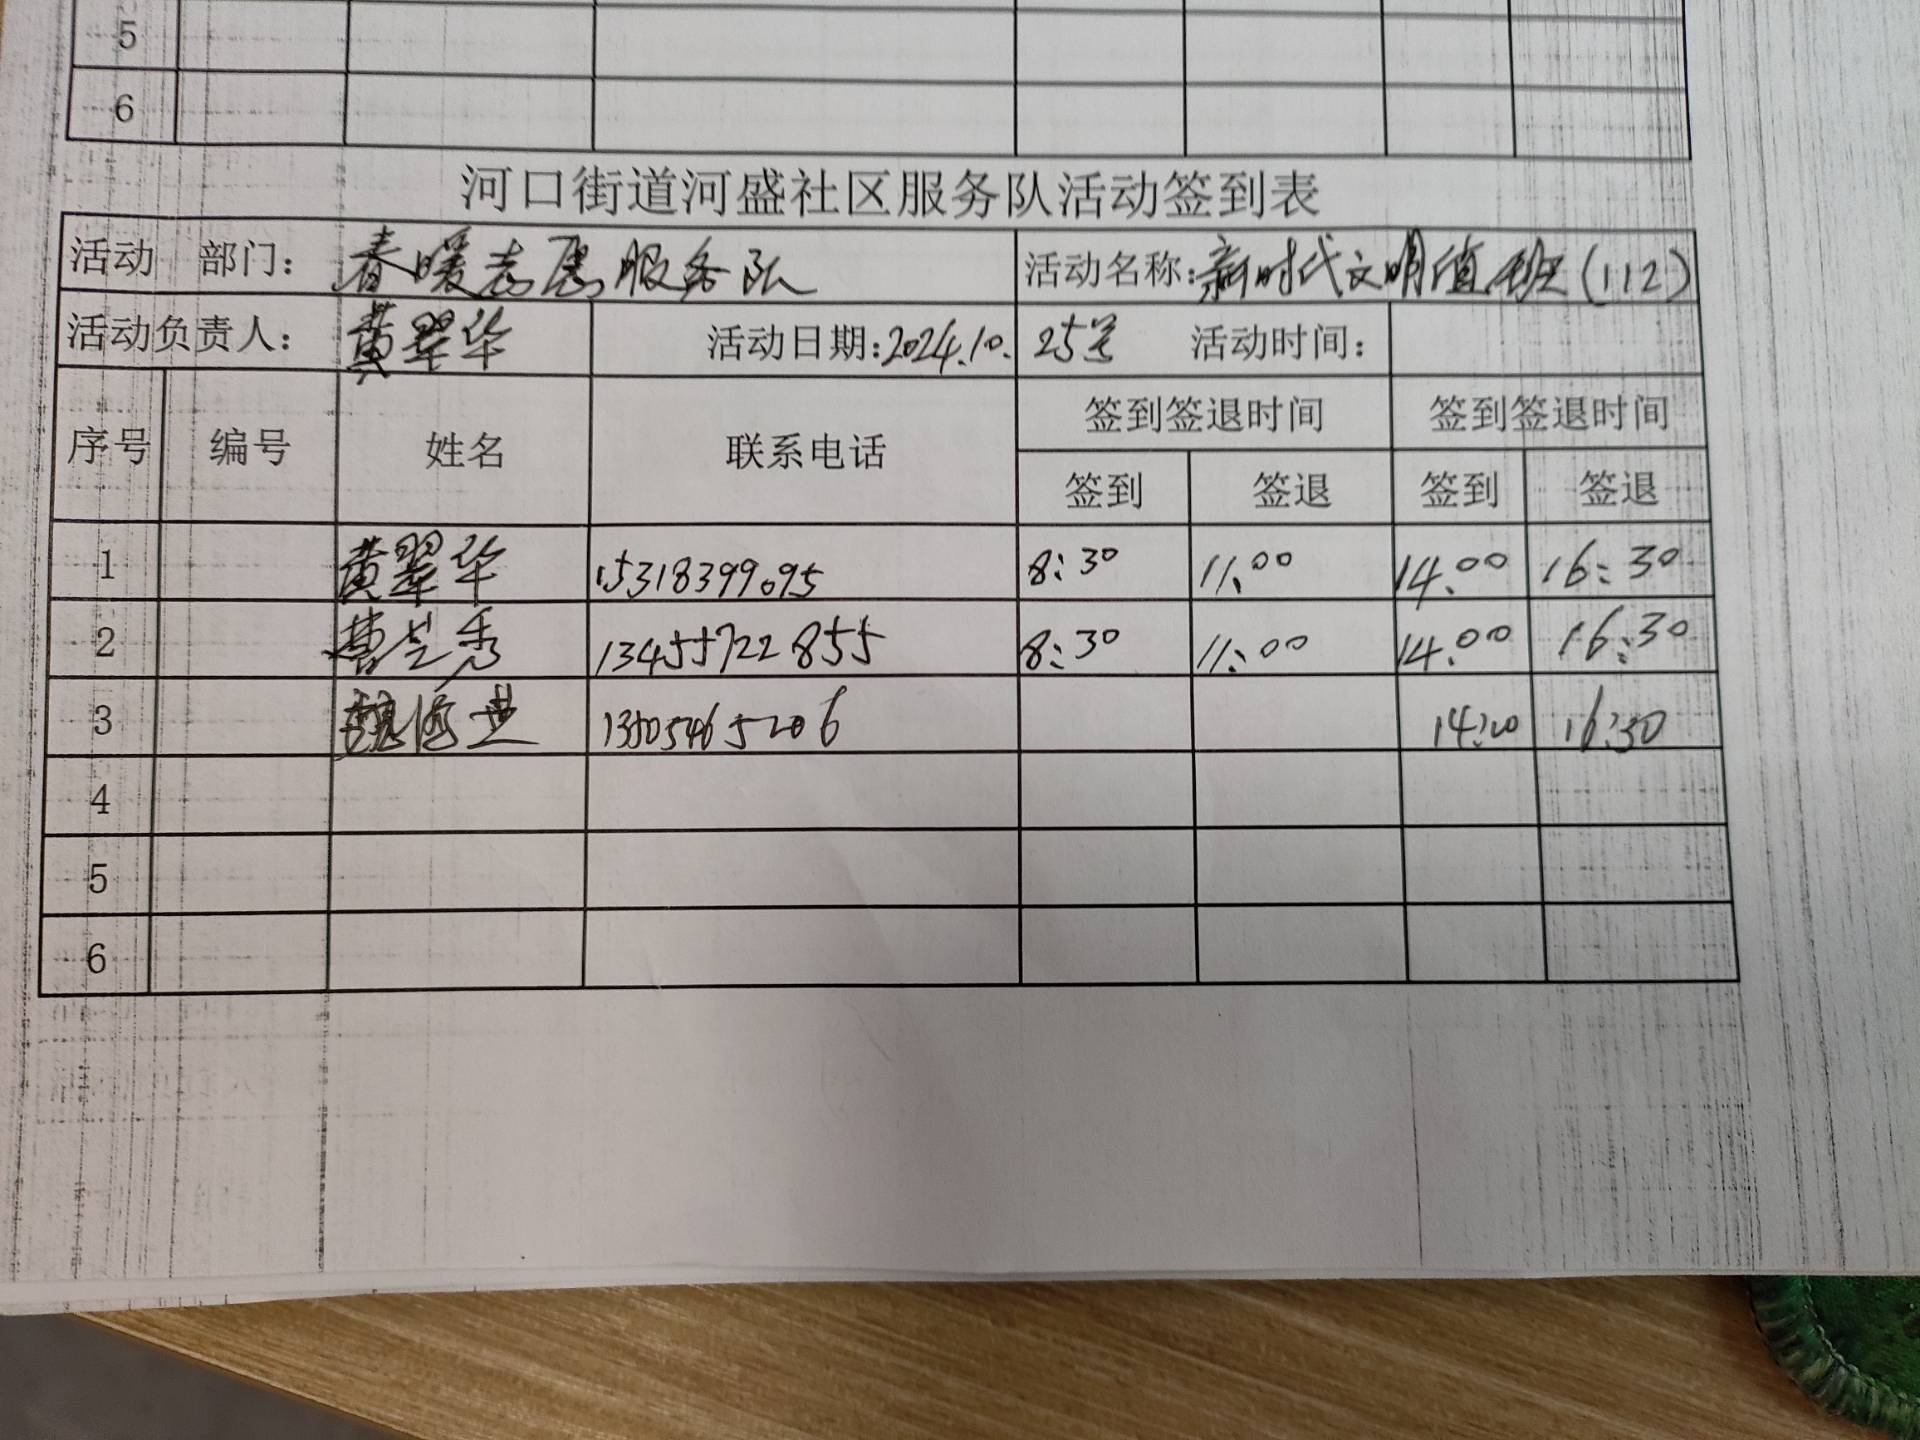 5
6
河口街道河盛社区服务队活动签到表
活动 部门： 春暖志愿服务队 活动名称：新时代文明值班（112）
活动负责人： 黄翠华 活动日期：2024.10. 25号 活动时间：
序号 编号 姓名 联系电话 签到签退时间 签到签退时间
签到 签退 签到 签退
1 黄翠华 15318399095 8:30 11:00 14:00 16:30
2 曹兰秀 13455722855 8:30 11:00 14:00 16:30
3 16:30
4
5
6